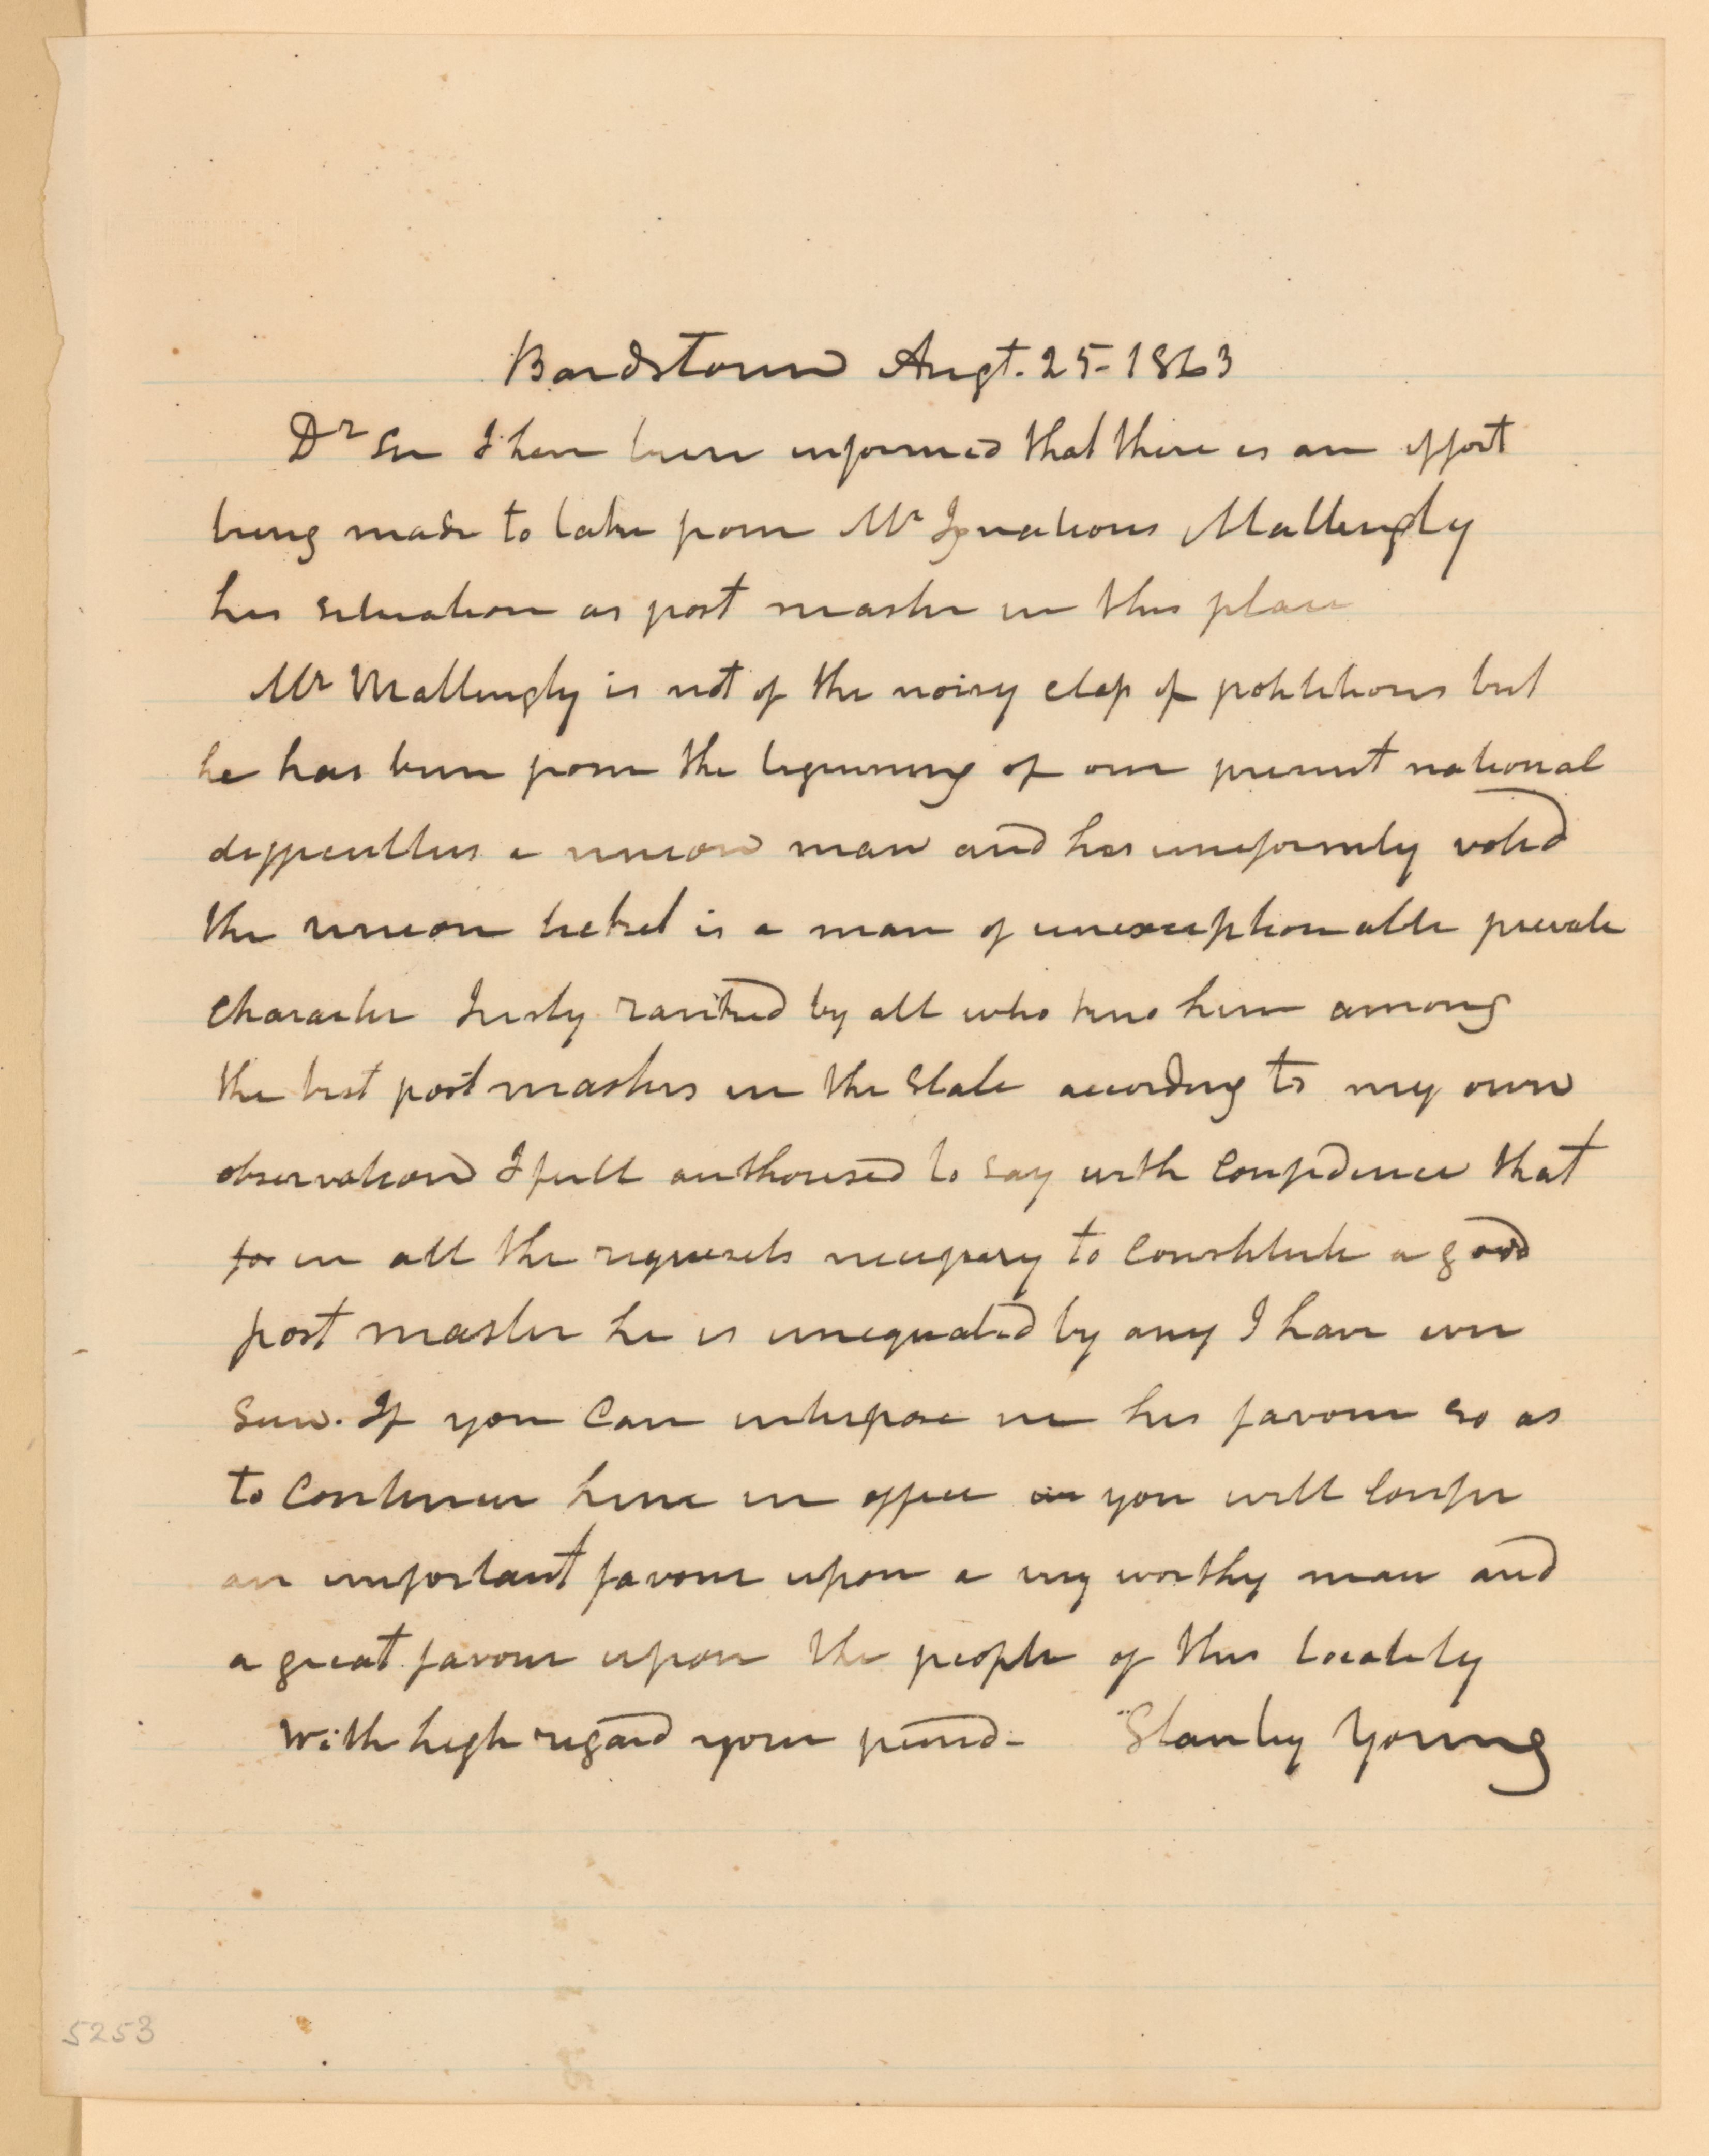 Bardstown Augt. 25- 1863
Dr Sir I have been informed that there is an effort
being made to take from Mr Ignatious Mattingly
his situation as post master in this place
Mr Mattingly is not of the noisy class of polititions but
he has been from the begining of our present national
difficulties a union man and has uniformly voted
the union ticket is a man of unexceptionable private
character Justly ranked by all who know him among
the best post masters in the State according to my own
observation I feill authorised to say with confidence that
for in all the requisets necessary to constitute a good
post master he is unequaled by any I have ever
seen. If you can interpose in his favour so as
to continue him in office you will confer
an important favour upon a very worthy man and
a great favour upon the people of this locality
With high regard your friend- Stanley Young
5253